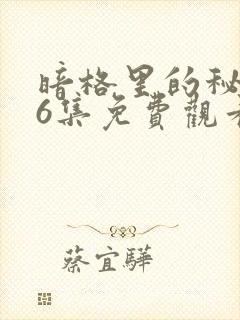 暗格里的秘
6集免費觀看
蔡宜驊